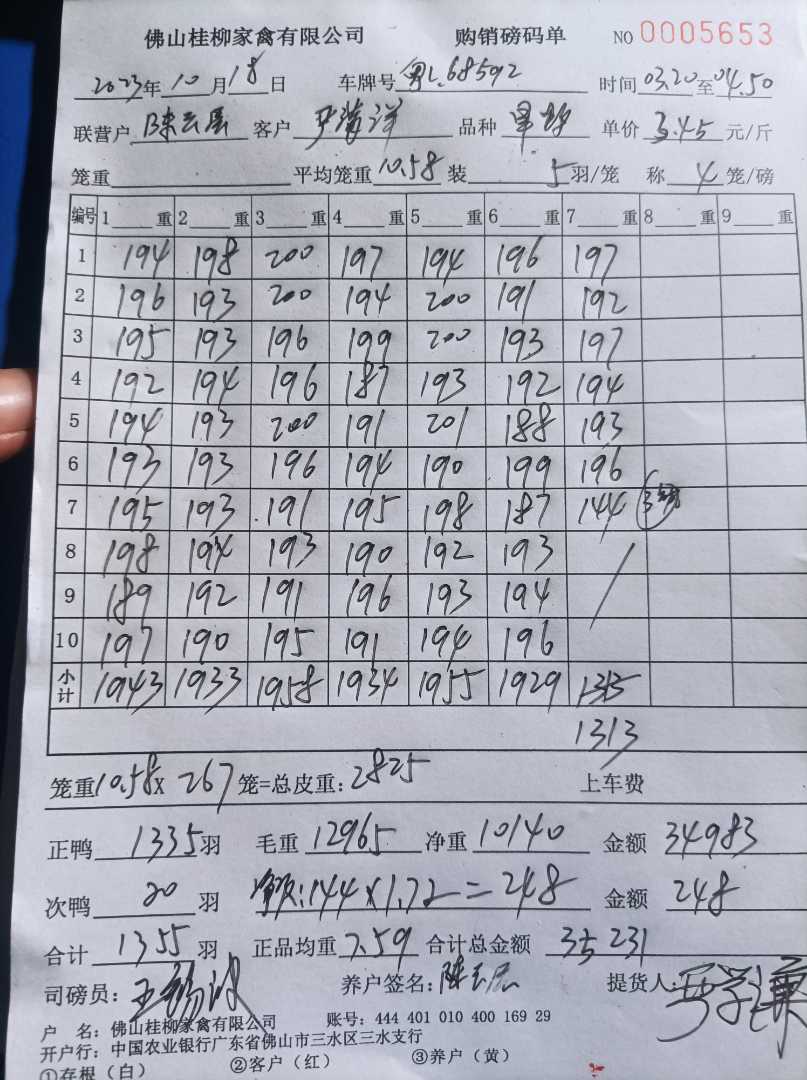 佛山桂柳家禽有限公司 购销磅码单 NO 0005653
2023年10月18日 车牌号 粤L.68592 时间03.20至04.50
联营户 客户 品种 单价 3.45 元/斤
笼重 平均笼重10.58 装 5羽/笼 称 4 笼/磅
编号 1 重 2 重 3 重 4 重 5 重 6 重 7 重 8 重 9 重
1 194 198 200 197 194 196 197
2 196 193 200 194 200 191 192
3 195 193 196 199 200 193 197
4 192 194 196 187 193 192 194
5 194 193 200 191 201 188 193
6 193 193 196 194 190 199 196
7 195 193 191 195 198 187 144
8 198 194 193 190 192 193
9 189 192 191 196 193 194
10 197 190 195 191 194 196
小计 1943 1933 1958 1934 1955 1929
1313
笼重10.58x 267 笼=总皮重:2825 上车费
正鸭 1335羽 毛重 12965 净重 10140 金额 34983
次鸭 20 羽 :144×1.72=248 金额 248
合计 1355 羽 正品均重 7.59 合计总金额 35231
司磅员: 养户签名: 提货人:
户 名: 佛山桂柳家禽有限公司 账号: 444 401 010 400 169 29
开户行: 中国农业银行广东省佛山市三水区三水支行
①存根(白) ②客户(红) ③养户(黄)